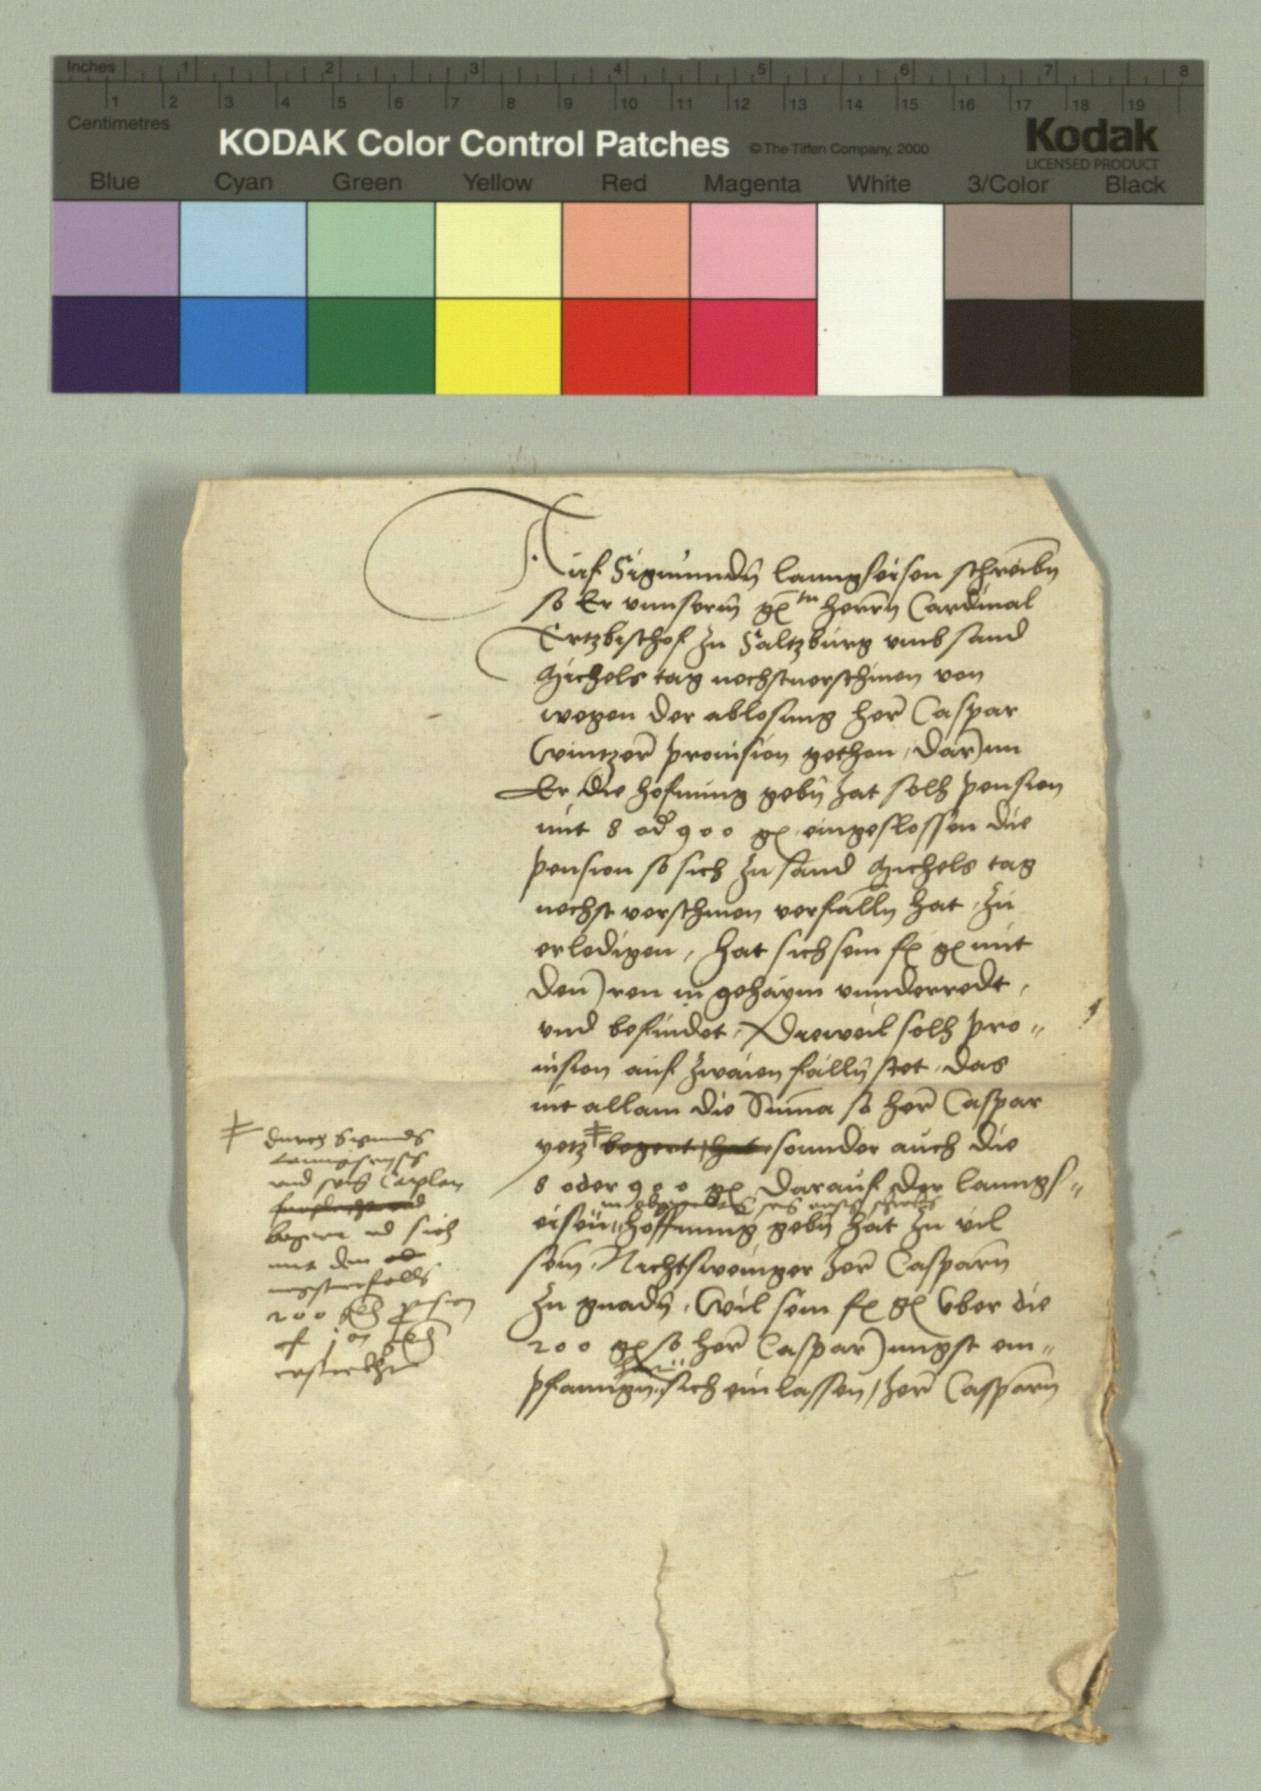 Inches 1 2 3 4 5 6 7 8
1 2 3 4 5 6 7 8 9 10 11 12 13 14 15 16 17 18 19
Centimetres
KODAK Color Control Patches © The Tiffen Company, 2000 Kodak
LICENSED PRODUCT
Blue Cyan Green Yellow Red Magenta White 3/Color Black
Auf Sigmunds lanngseisen schreibn
so Er vnnserm gn herrn Cardinal
Ertzbischof zu Saltzburg vmb sand
Michels tag nechstuerschinen von
wegen der ablosung her Caspar
Wintzer prouision gethan, darInn
Er die hofnung gebn hat solh pension
mit 8 od 900 gl eingeslossen die
pension so sich zu sand Michels tag
nechst verschinen verfalln hat zu
erledigen, hat sich sein f g mit
den Iren in gehaym vnnderredt,
vnd befindet, Dieweil solh pro-
uision auf zwaien falln stet, das
nit allain die Suma so her Caspar
yetz begert hat sonnder auch die
8 oder 900 gl darauf der lanngs-
eisen hoffnung gebn hat zu vil
sein, Nichtsweniger her Casparn
zu gnadn, Wil sein f g vber die
200 gl so her Caspar Jungst em-
pfangen sich einlassen, her Casparn
durch Sigmunds
vnd sein Caplan
begert vnd sich
mit den
200